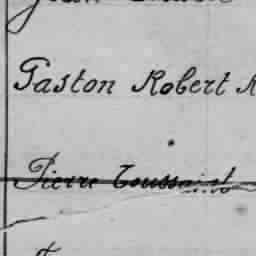 Gaston Robert
Pierre Toussaint